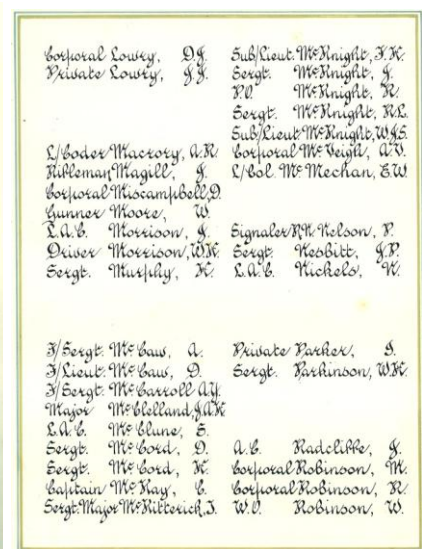 Corporal Lowry, D.J.
Private Lowry, J.J.
L/Coder Macrory, A.R.
Rifleman Magill, J.
Corporal Miscampbell, D.
Gunner Moore, W.
L.A.C. Morrison, J.
Driver Morrison, W.H.
Sergt. Murphy, H.
F/Sergt. McCaw, A.
F/Lieut. McCaw, D.
F/Sergt. McCarroll A.Y.
Major McClelland, J.A.H.
L.A.C. McClune, S.
Sergt. McCord, D.
Sergt. McCord, H.
Captain McKay, C.
Sergt. Major McKitterick, J.
Sub/Lieut. McKnight, F.H.
Sergt. McKnight, J.
P.O. McKnight, R.
Sergt. McKnight, R.L.
Sub/Lieut. McKnight, W.J.S.
Corporal McVeigh, A.V.
L/Col. McMechan, E.W.
Signaler R.N. Nelson, P.
Sergt. Nesbitt, J.P.
L.A.C. Nickels, N.
Private Parker, S.
Sergt. Parkinson, W.H.
A.C. Radcliffe, J.
Corporal Robinson, M.
Corporal Robinson, R.
W.O. Robinson, W.